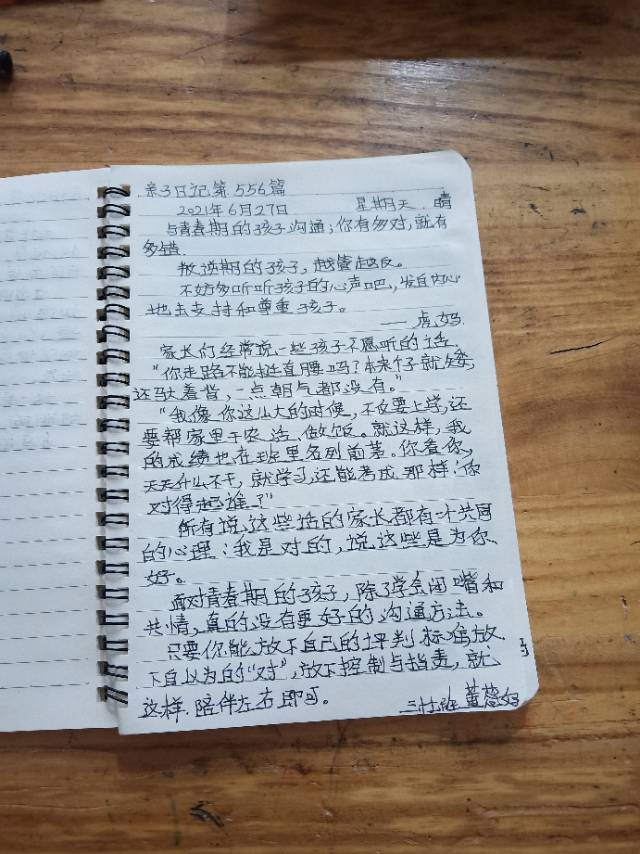 亲子日记第556篇
2021年6月27日 星期天 晴
与青春期的孩子沟通;你有多对,就有
多错.
叛逆期的孩子,越管越反。
不妨多听听孩子的心声吧,发自内心
地去支持和尊重孩子。
——虎妈.
家长们经常说一些孩子不愿听的话.
"你走路不能挺直腰吗?本来个子就矮,
还驮着背,一点朝气都没有。"
"我像你这么大的时候,不仅要上学,还
要帮家里干农活、做饭。就这样,我
的成绩也在班里名列前茅。你看你,
天天什么不干,就学习还能考成那样!你
对得起谁?"
所有说这些话的家长都有一个共同
的心理:我是对的,说这些是为你
好。
面对青春期的孩子,除了学会闭嘴和
共情,真的没有更好的沟通方法。
只要你能放下自己的评判标准放
下自以为的"对",放下控制与指责,就
这样.陪伴左右即可。